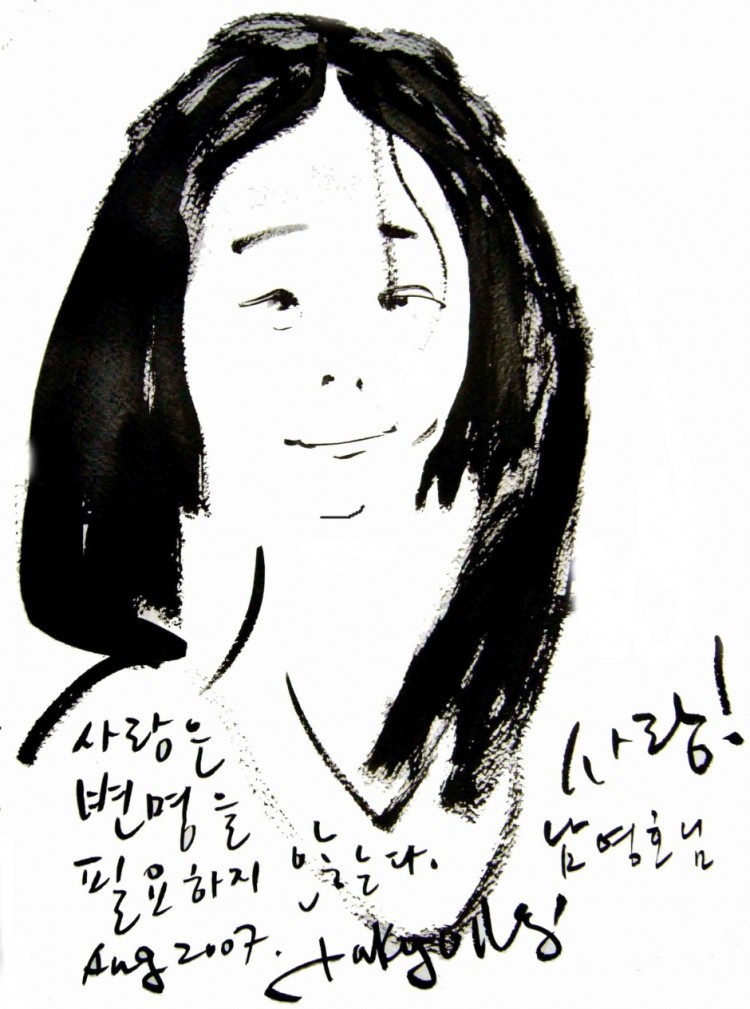 사랑은
변명을
필요하지 않는다.
Aug 2007.
사랑!
남영호님